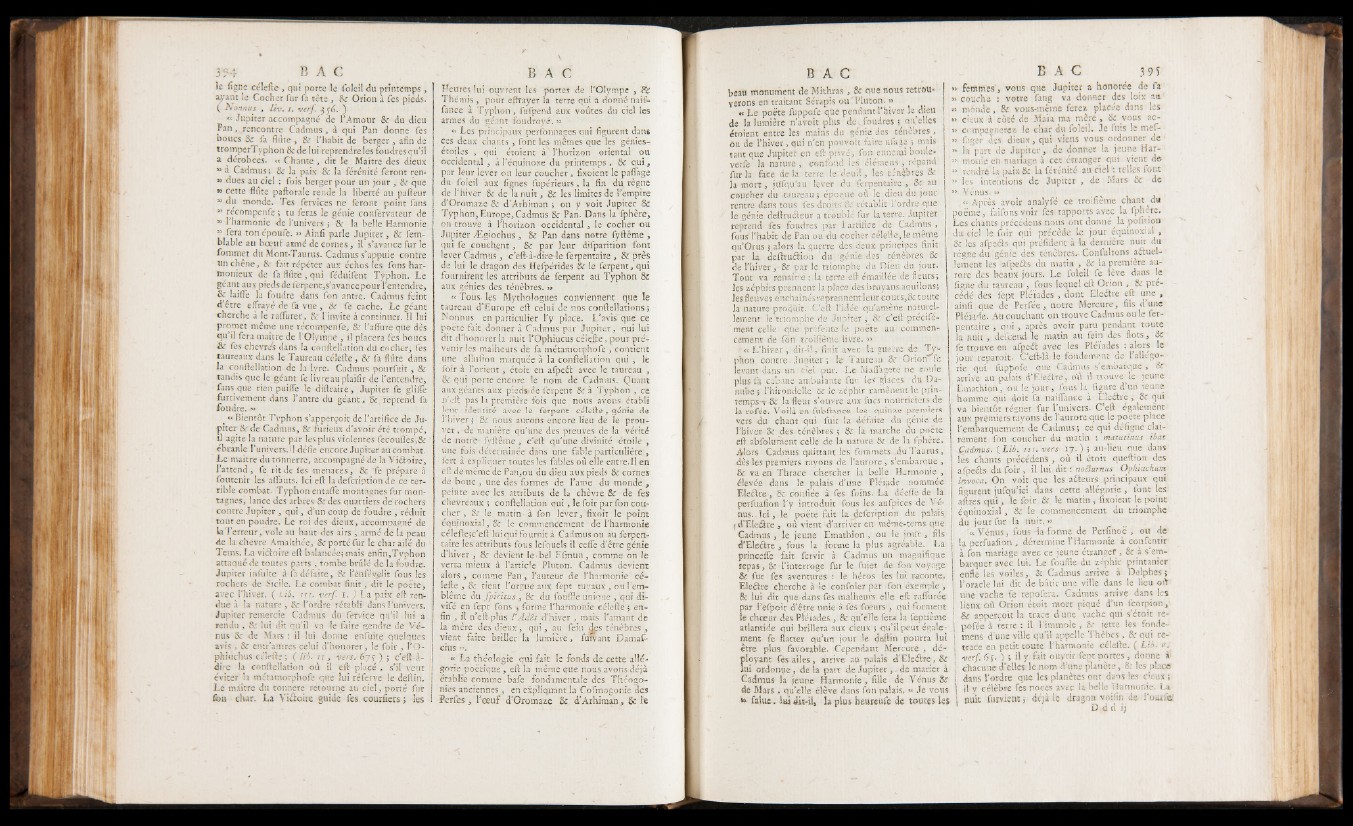 394 B A C
le signe céleste, qui porte le soleil du printemps,
ayant le Cocher sur sa tête, & Orion à ses pieds.
( Nonnus, liv. 1. vers. 356. )
« Jupiter accompagné de l'Amour & du dieu
Pan, rencontre Cadmus, à qui Pan donne ses
boucs & sa flûte, & l'habit de berger, afin de
tromper Typhon & de lui reprendre les foudres qu'il
a dérobées. « Chante, dit le Maitre des dieux
» à Cadmus; & la paix & la sérénité seront ren-
» dues au ciel : sois berger pour un jour, & que
» cette flûte pastorale rende la liberté au pasteur
» du monde. Tes services ne seront point sans
» récompense; tu seras le génie conservateur de
» l'harmonie de l'univers; & la belle Harmonie
» sera ton épouse. » Ainsi parle Jupiter, & sem-
blable au bœuf armé de cornes, il s'avance sur le
sommet du Mont-Taurus. Cadmus s'appuie contre
un chêne, & fait répéter aux échos les sons har-
monieux de sa flûte, qui séduisent Typhon. Le
géant aux pieds de serpent, s'avance pour l'entendre,
& laisse la foudre dans son antre. Cadmus feint
d'être effrayé de sa vue, & se cache. Le géant
cherche à le rassurer, & l'invite à continuer. Il lui
promet même une récompense, & l'assure que dès
qu'il sera maître de l'Olympe, il placera ses boucs
& ses chevres dans la constellation du cocher, ses
taureaux dans le Taureau céleste, & sa flûte dans
la constellation de la lyre. Cadmus poursuit, &
tandis que le géant se livre au plaisir de l'entendre,
sans que rien puisse le distraire, Jupiter se glisse
furtivement dans l'antre du géant, & reprend sa
foudre. »
« Bientôt Typhon s'apperçoit de l'artifice de Ju-
piter & de Cadmus, & furieux d'avoir été trompé,
il agite la nature par les plus violentes secousses, &
ébranle l'univers. Il défie encore Jupiter au combat.
Le maitre du tonnerre, accompagné de la Victoire,
l'attend, se rit de ses menaces, & se prépare à
soutenir les assauts. Ici est la description de ce ter-
rible combat. Typhon entasse montagnes sur mon-
tagnes, lance des arbres & des quartiers de rochers
contre Jupiter, qui, d'un coup de foudre, réduit
tout en poudre. Le roi des dieux, accompagné de
la Terreur, vole au haut des airs, armé de la peau
de la chevre Amalthée, & porté sur le char aîlé du
Tems. La victoire est balancée; mais enfin, Typhon
attaqué de toutes parts, tombe brûlé de la foudre.
Jupiter insulte à sa défaite, & l'ensévelit sous les
rochers de Sicile. Le combat finit, dit le poete,
avec l'hiver. ( Lib. III. vers. I. ) La paix est ren-
due à la nature, & l'ordre rétabli dans l'univers.
Jupiter remercie Cadmus du service qu'il lui a
rendu, & lui dit qu'il va le faire gendre de Vé-
nus & de Mars : il lui donne ensuite quelques
avis, & entr'autres celui d'honorer, le soir, l'O-
phiuchus céleste; ( lib. II, vers. 675 ); c'est-à-
dire la constellation où il est placé, s'il veut
éviter la métamorphose que lui réserve le destin.
Le maître du tonnerre retourne au ciel, porté sur
son char. La Victoire guide ses coursiers; les
B A C
Heures lui ouvrent les portes de l'Olympe, &
Thémis, pour effrayer la terre qui a donné nais-
sance à Typhon, suspend aux voûtes du ciel les
armes du géant foudroyé. »
« Les principaux personnages qui figurent dans
ces deux chants, sont les mêmes que les génies-
étoiles, qui étoient à l'horizon oriental ou
occidental, à l'équinoxe du printemps, & qui,
par leur lever ou leur coucher, fixoient le passage
du soleil aux signes supérieurs, la fin du règne
de l'hiver & de la nuit, & les limites de l'empire
d'Oromaze & d'Arhiman; on y voit Jupiter &
Typhon, Europe, Cadmus & Pan. Dans la sphère,
on trouve à l'horizon occidental, le cocher ou
Jupiter Ægiochus, & Pan dans notre système,
qui se couchent, & par leur disparition font
lever Cadmus, c'est-à-dire le serpentaire, & près
de lui le dragon des Hespérides & le serpent, qui
fournirent les attributs de serpent au Typhon &
aux génies des ténèbres. »
« Tous les Mythologues conviennent que le
taureau d'Europe est celui de nos constellations;
Nonnus en particulier l'y place. L'avis que ce
poète fait donner à Cadmus par Jupiter, qui lui
dit d'honorer la nuit l'Ophiucus céleste, pour pré-
venir les malheurs de sa métamorphose, contient
une allusion marquée à la constellation qui, le
soir à l'orient, étoit en aspect avec le taureau,
& qui porte encore le nom de Cadmus. Quant
aux génies aux pieds de serpent & à Typhon, ce
n'est pas la première fois que nous avons établi
leur identité avec le serpent céleste, génie de
l'hiver; & nous aurons encore lieu de le prou-
ver, de manière qu'une des preuves de la vérité
de notre système, c'est qu'une divinité étoile,
une fois déterminée dans une fable particulière,
sert à expliquer toutes les fables où elle entre. Il en
est de même de Pan, ou du dieu aux pieds & cornes
de bouc, une des formes de l'ame du monde,
peinte avec les attributs de la chèvre & de ses
chevreaux; constellation qui, le soir par son cou-
cher, & le matin à son lever, fixoit le point
équinoxial, & le commencement de l'harmonie
céleste; c'est lui qui fournit à Cadmus ou au serpen-
taire les attributs sous lesquels il cesse d'être génie
d'hiver, & devient le bel Esmun, comme on le
verra mieux à l'article Pluton. Cadmus devient
alors, comme Pan, l'auteur de l'harmonie cé-
leste, & tient l'orgue aux sept tuyaux, ou l'em-
blême du spiritus, & du souffle unique, qui di-
visé en sept sons, forme l'harmonie céleste; en-
fin, il n'est plus l'Adès d'hiver, mais l'amant de
la mère des dieux, qui, au sein des ténèbres,
vient faire briller la lumière, suivant Damas-
cius ».
« La théologie qui fait le fonds de cette allé-
gorie poétique, est la même que nous avons déjà
établie comme base fondamentale des Théogo-
nies anciennes, en expliquant la Cosmogonie des
Perses, l'œuf d'Oromaze & d'Arhiman, & le
B A C
beau monument de Mithras, & que nous retrou-
verons en traitant Sérapis ou Pluton. »
« Le poète suppose que pendant l'hiver le dieu
de la lumière n'avoit plus de foudres; qu'elles
étoient entre les mains du génie des ténèbres,
ou de l'hiver, qui n'en pouvoit faire usage; mais
tant que Jupiter en est privé, son ennemi boule-
verse la nature, confond les élémens, répand
sur la face de la terre le deuil, les ténèbres &
la mort, jusqu'au lever du serpentaire, & au
coucher du taureau; époque où le dieu du jour
rentre dans tous ses droits & rétablit l'ordre que
le génie destructeur a troublé sur la terre. Jupiter
reprend ses foudres par l'artifice de Cadmus,
sous l'habit de Pan ou du cocher céleste, le même
qu'Orus; alors la guerre des deux principes finit
par la destruction du génie des ténèbres &
de l'hiver, & par le triomphe du Dieu du jour.
Tout va renaître : la terre est émaillée de fleurs;
les zéphirs prennent la place des bruyans aquilons;
les fleuves enchainés reprennent leur cours, & toute
la nature produit. C'est l'idée qu'amène naturel-
lement le triomphe de Jupiter, & c'est précisé-
ment celle que présente le poëte au commen-
cement de son troisième livre. »
« L'hiver, dit-il, finit avec la guerre de Ty-
phon contre Jupiter; le Taureau & Orion se
levant dans un ciel pur. Le Massagete ne roule
plus sa cabane ambulante sur les glaces du Da-
nube; l'hirondelle & le zéphir ramènent le prin-
temps, & la fleur s'ouvre aux sucs nourriciers de
la rosée. Voilà en substance les quinze premiers
vers du chant qui suit la défaite du génie de
l'hiver & des ténèbres; & la marche du poète
est absolument celle de la nature & de la sphère.
Alors Cadmus quittant les sommets du Taurus,
dès les premiers rayons de l'aurore, s'embarque,
& va en Thrace chercher la belle Harmonie,
élevée dans le palais d'une Pléiade nommée
Electre, & confiée à ses soins. La déesse de la
persuasion l'y introduit sous les auspices de Vé-
nus. Ici, le poète fait la description du palais
d'Electre, où vient d'arriver en même-tems que
Cadmus, le jeune Emathion, ou le jour, fils
d'Electre, sous la forme la plus agréable. La
princesse fait servir à Cadmus un magnifique
repas, & l'interroge sur le sujet de son voyage
& sur ses aventures : le héros les lui raconte.
Electre cherche à le consoler par son exemple,
& lui dit que dans ses malheurs elle est rassurée
par l'espoir d'être unie à ses sœurs, qui forment
le chœur des Pléiades, & qu'elle sera la septième
atlantide qui brillera aux cieux; qu'il peut égale-
ment se flatter qu'un jour le destin pourra lui
être plus favorable. Cependant Mercure, dé-
ployant ses ailes, arrive au palais d'Electre, &
lui ordonne, de la part de Jupiter, de marier à
Cadmus la jeune Harmonie, fille de Vénus &
de Mars, qu'elle élève dans son palais. « Je vous
» salue, lui dit-il, la plus heureuse de toutes les
B A C 395
» femmes, vous que Jupiter a honorée de sa
» couche : votre sang va donner des loix au
» monde, & vous-même serez placée dans les
» cieux à côté de Maïa ma mère, & vous ac-
» compagnerez le char du soleil. Je suis le mes-
» sager des dieux, qui viens vous ordonner de
» la part de Jupiter, de donner la jeune Har-
» monie en mariage à cet étranger qui vient de
» rendre la paix & la sérénité au ciel : telles sont
» les intentions de Jupiter, de Mars & de
» Vénus. »
« Après avoir analysé ce troisième chant du
poème, faisons voir ses rapports avec la sphère.
Les chants précédens nous ont donné la position
du ciel le soir qui précède le jour équinoxial,
& les aspects qui président à la dernière nuit du
règne du génie des ténèbres. Consultons actuel-
lement les aspects du matin, & la première au-
rore des beaux jours. Le soleil se lève dans le
signe du taureau, sous lequel est Orion, & pré-
cédé des sept Pléiades, dont Electre est une,
ainsi que de Persée, notre Mercure, fils d'une
Pléiade. Au couchant on trouve Cadmus ou le ser-
pentaire, qui, après avoir paru pendant toute
la nuit, descend le matin au sein des flots, &
se trouve en aspect avec les Pléiades : alors le
jour reparoît. C'est-là le fondement de l'allégo-
rie qui suppose que Cadmus s'embarque, &
arrive au palais d'Electre, où il trouve le jeune
Emathion, ou le jour, sous la figure d'un jeune
homme qui doit sa naissance à Electre, & qui
va bientôt régner sur l'univers. C'est également
aux premiers rayons de l'aurore que le poète place
l'embarquement de Cadmus; ce qui désigne clai-
rement son coucher du matin : matutinus ibat
Cadmus. ( Lib. III. vers 17. ); au-lieu que dans
les chants précédens, où il étoit question des
aspects du soir, il lui dit : nocturnus Ophiuchum
invoca. On voit que les acteurs principaux qui
figurent jusqu'ici dans cette allégorie, sont les
astres qui, le soir & le matin, fixoient le point
équinoxial, & le commencement du triomphe
du jour sur la nuit. »
« Vénus, sous la forme de Persinoé, ou de
la persuasion, détermine l'Harmonie à consentir
à son mariage avec ce jeune étranger, & à s'em-
barquer avec lui. Le souffle du zéphir printanier
enfle les voiles, & Cadmus arrive à Delphes;
l'oracle lui dit de bâtir une ville dans le lieu où
une vache se reposera. Cadmus arrive dans les
lieux où Orion étoit mort piqué d'un scorpion,
& apperçoit la trace d'une vache qui s'étoit re-
posée à terre : il l'immole, & jette les fonde-
mens d'une ville qu'il appelle Thèbes, & qui re-
trace en petit toute l'harmonie céleste. ( Lib. V.
vers. 65. ); il y fait ouvrir sept portes, donne à
chacune d'elles le nom d'une planète, & les place
dans l'ordre que les planètes ont dans les cieux;
il y célèbre ses noces avec la belle Harmonie. La
nuit survient; déjà le dragon voisin de l'ourse
D d d ij